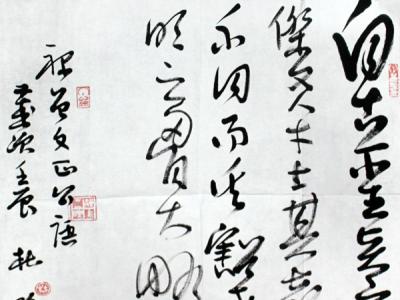 自古聖賢
傑文人才士其志
不同而其豁達
明之胸大略
録曾文正公語
歲次壬辰杜